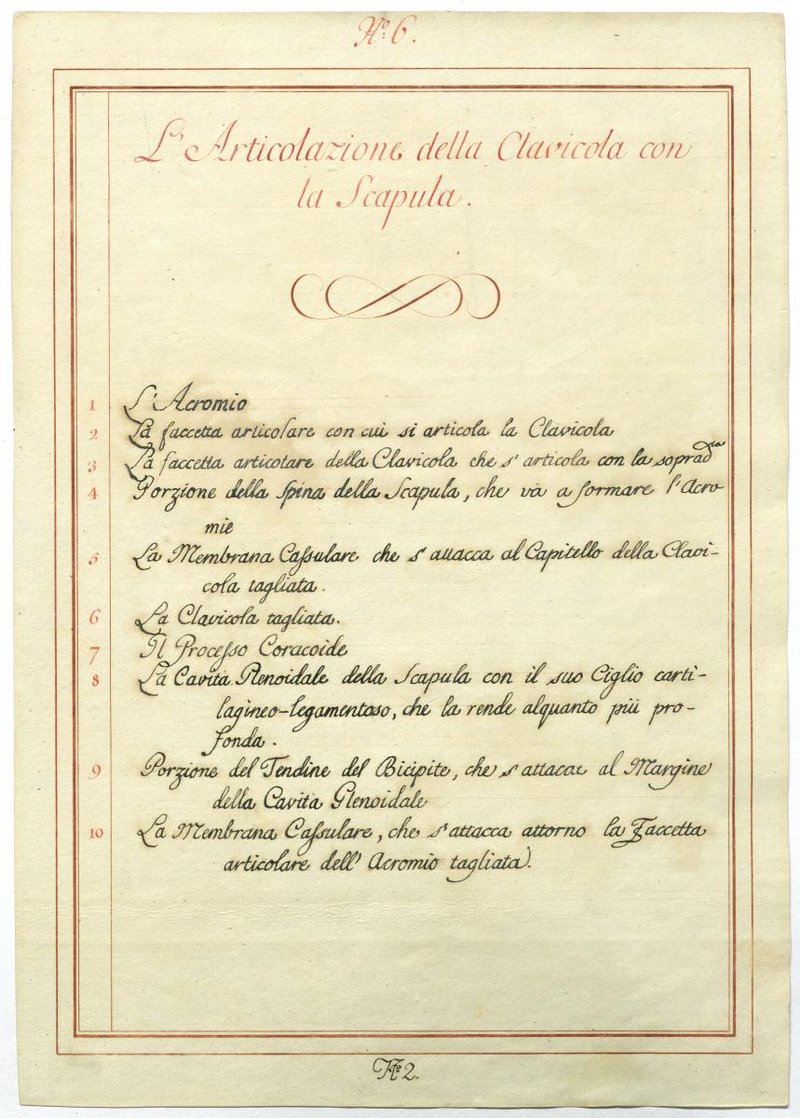 Nº 6.
L'Articolazione della Clavicola con
la Scapula.
1 L'Acromio
2 La faccetta articolare con cui si articola la Clavicola
3 La faccetta articolare della Clavicola che s'articola con la sopradta
4 Porzione della Spina della Scapula, che và a formare l'Acro-
mie
5 La Membrana Cassulare che s'attacca al Capitello della Clavi-
cola tagliata.
6 La Clavicola tagliata.
7 Il Processo Coracoide
8 La Cavita Glenoidale della Scapula con il suo Ciglio carti-
lagineo-legamentoso, che la rende alquanto più pro-
fonda.
9 Porzione del Tendine del Bicipite, che s'attacac al Margine
della Cavita Glenoidale
10 La Membrana Cassulare, che s'attacca attorno la Faccetta
articolare dell'Acromio tagliata.
Nº 2.